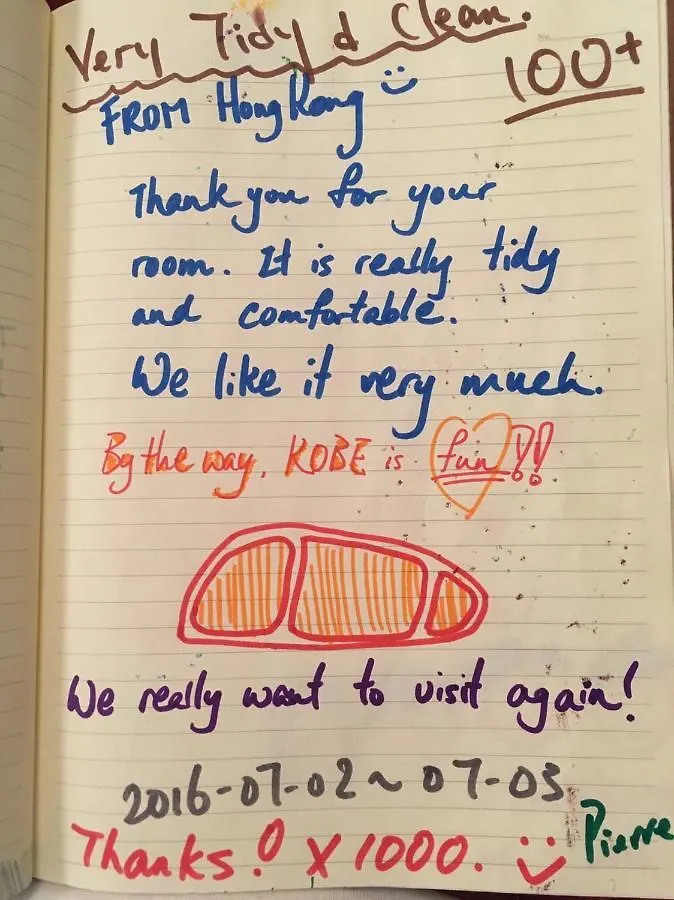 Very Tidy & Clean.
100+
FROM Hong Kong
Thank you for your
room. It is really tidy
and comfortable.
We like it very much.
By the way, KOBE is fun!!
We really want to visit again!
2016-07-02~07-03
Pierre
Thanks! x 1000.